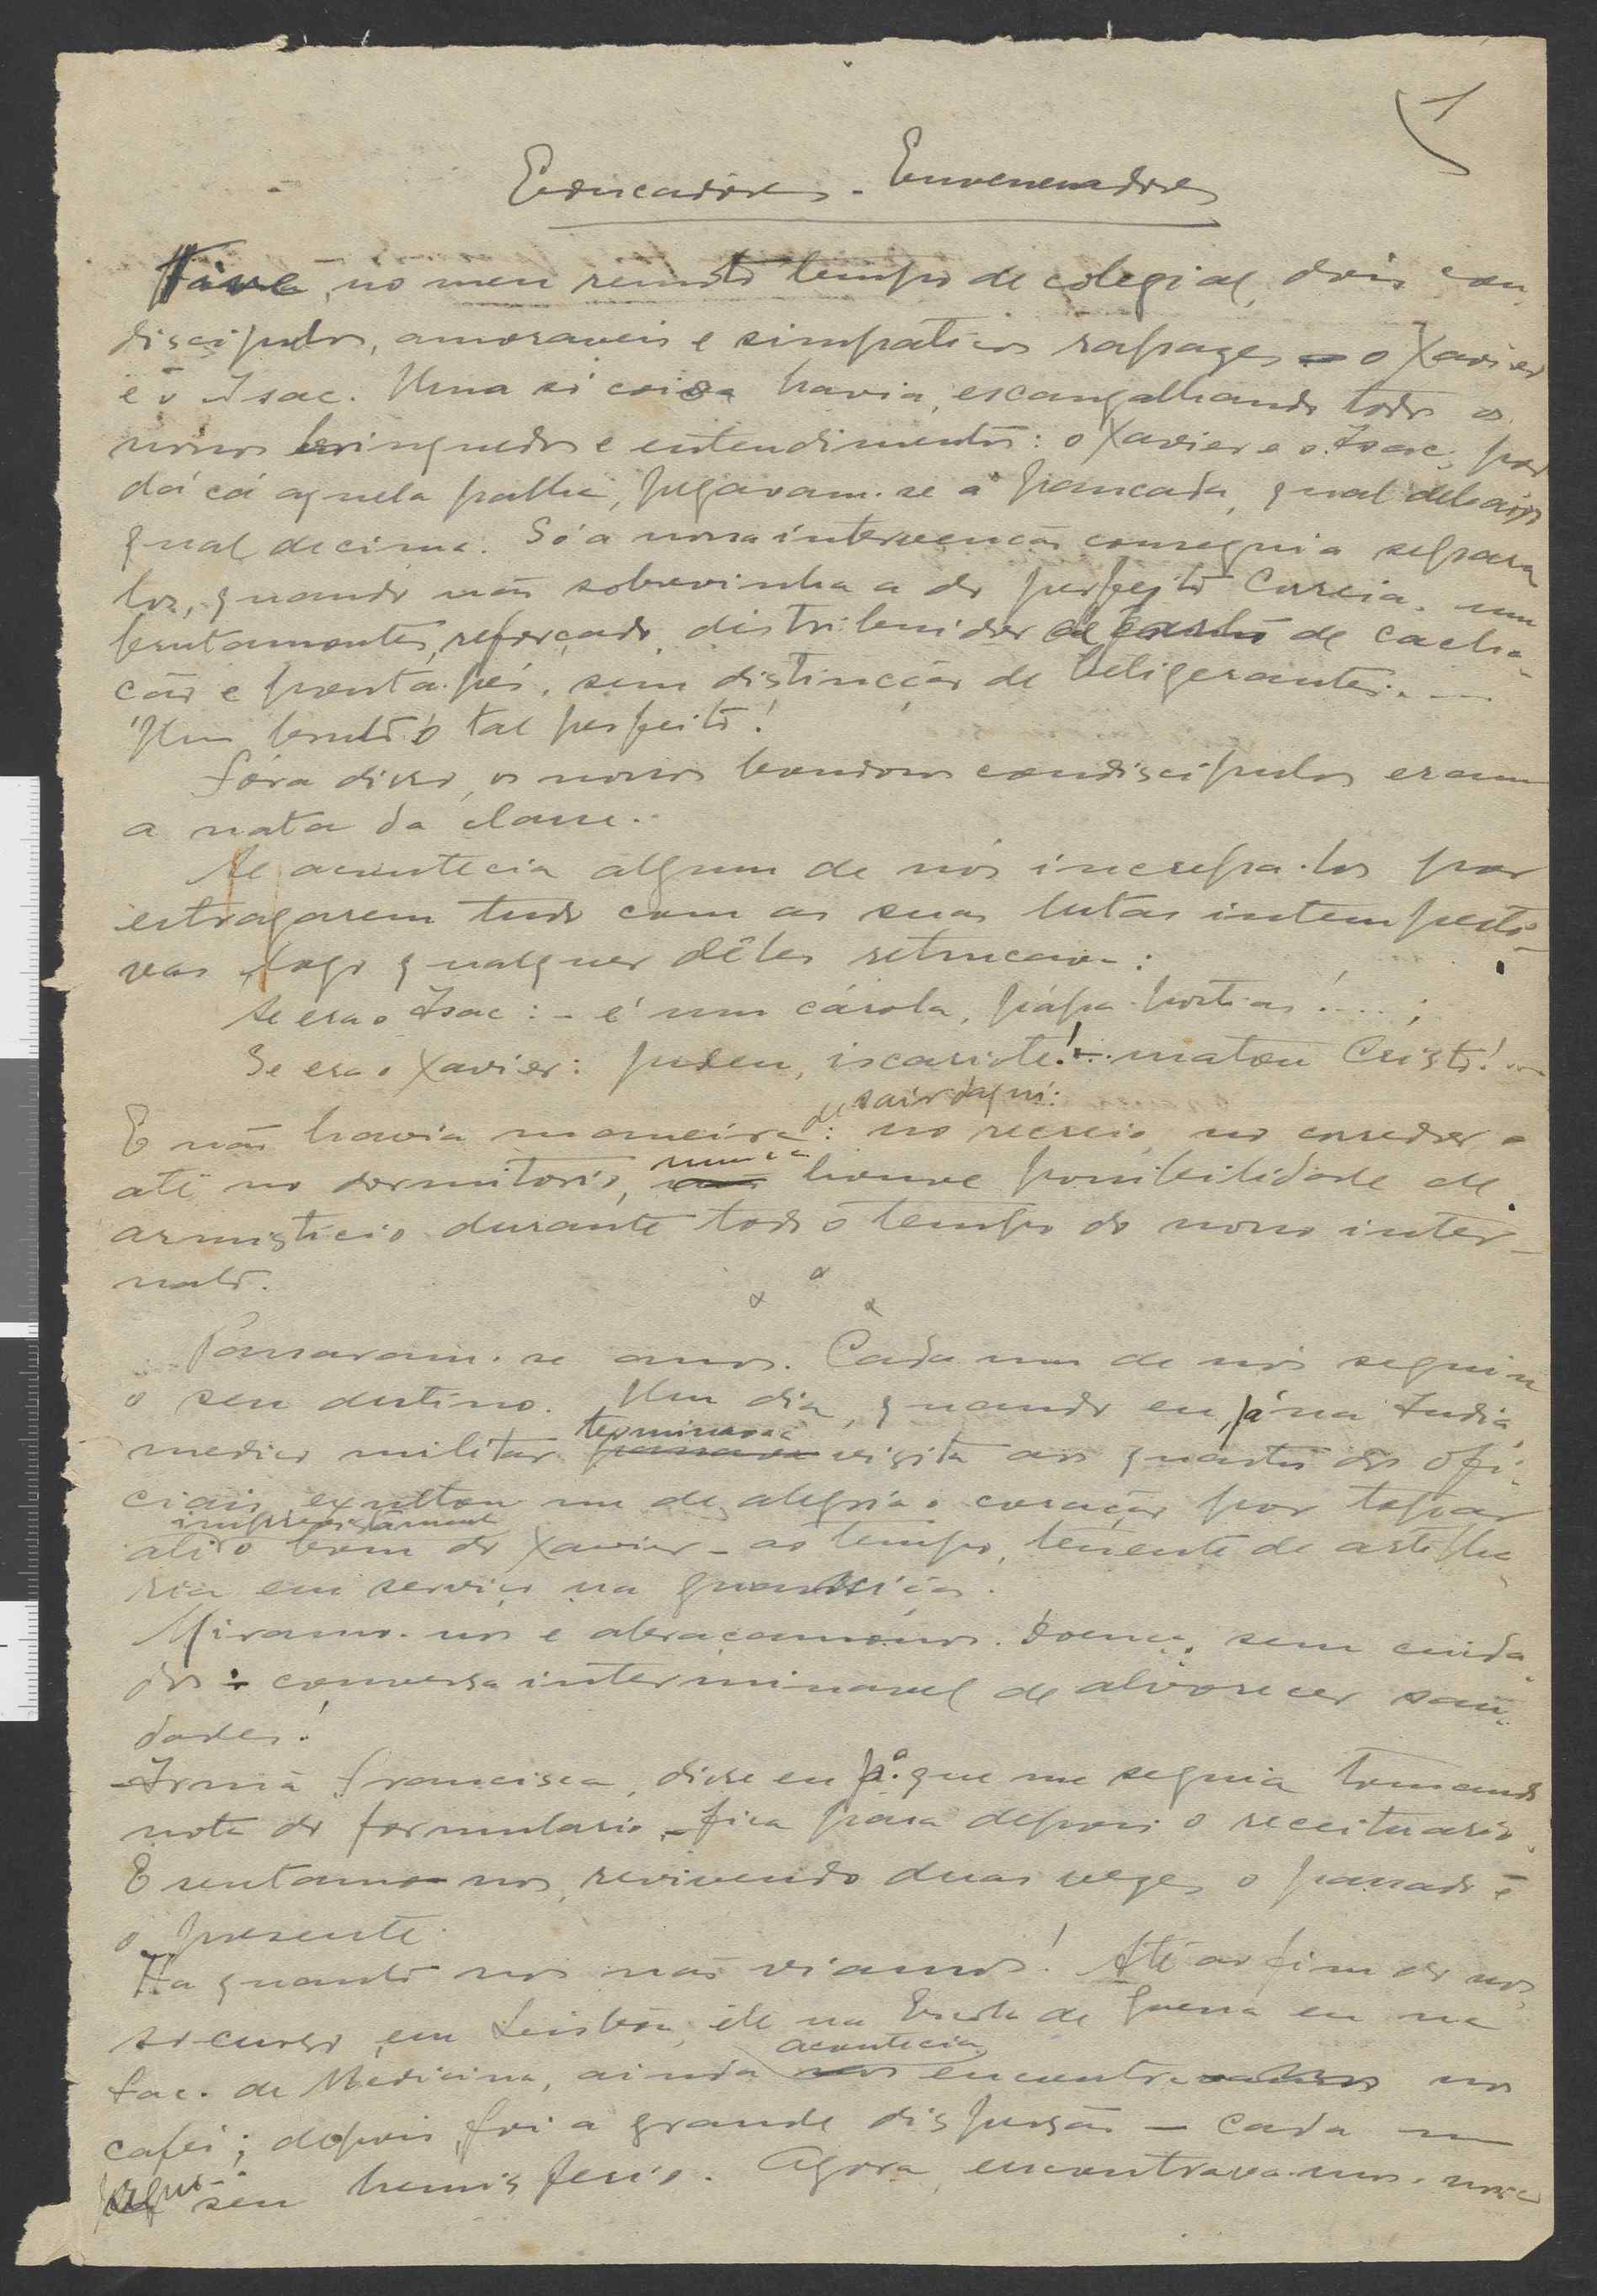 1
Educadores - Envenenadores
Tive, no meu remoto tempo de colegial, dois con-
discipulos, amoraveis e simpaticos rapazes — o Xavier
e o Isac. Uma só coisa havia, escangalhando todos os
nossos brinquedos e entendimentos: o Xavier e o Isac, por
dá cá aquela palha, pegavam-se á pancada, qual debaixo
qual decima. Só a nossa intervenção conseguia separa-
los, quando não sobrevinha a do perfeito Correia, um
brutamontes, reforçado, distribuidor de cacha-
ção e pontapés, sem distincção de beligerantes...
Um bruto o tal perfeito!
Fóra disso, os nossos bondosos condiscipulos eram
a nata da classe..
Se acontecia algum de nós increpa-los por
estragarem tudo com as suas lutas intempesti-
vas, logo qualquer dêles retrucava:
Se era o Isac: - é um cárola, pápa-hostias!....;
Se era o Xavier: judeu, iscariote!... matou Cristo!...
de sair daqui:
E não havia maneira: no recreio, no corredor e
nunca
até no dormitorio, houve possibilidade de
armisticio durante todo o tempo do nosso inter-
nato.
Passaram-se anos. Cada um de nós seguiu
o seu destino. Um dia, quando eu, já na India,
terminava
medico militar visita aos quartos dos ofi-
ciais, exultou-me de alegria o coração por topar
imprevistamente
ali o bom do Xavier - ao tempo, tenente de artilha-
ria em serviço na guarnição.
Miramo-nos e abraçamo-nos. Doença, sem cuida-
dos: conversa interminavel de alvorecer sau-
dades!
- Irmã Francisca, disse eu á que me seguia tomando
nota do formulario, - fica para depois o receituario.
E sentamo-nos, revivendo duas vezes, o passado e
o presente.
Ha quanto nos não viamos! Até ao fim do nos-
so curso, em Lisboa, ele na Escola de Guerra eu na
acontecia
Fac. de Medicina, ainda encontrar nos
cafés; depois, foi a grande dispersão - cada um
seu hemisferio. Agora, encontrava-mos-nos